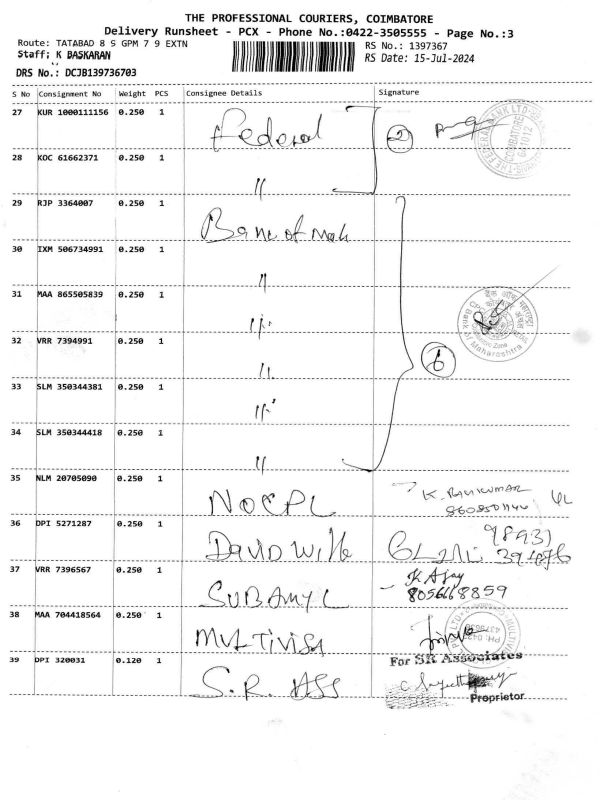 THE PROFESSIONAL COURIERS, COIMBATORE
Delivery Runsheet - PCX - Phone No.:0422-3505555 - Page No.:3
Route: TATABAD 8 9 GPM 7 9 EXTN
RS No.: 1397367
Staff; K BASKARAN
RS Date: 15-Jul-2024
DRS No.: DCJB139736703
S No Consignment No Weight PCS Consignee Details Signature
27 KUR 1000111156 0.250 1 Federal 2
28 KOC 61662371 0.250 1 "
29 RJP 3364007 0.250 1 Bank of Mah
30 IXM 506734991 0.250 1 "
31 MAA 865505839 0.250 1 "
32 VRR 7394991 0.250 1 " 6
33 SLM 350344381 0.250 1 "
34 SLM 350344418 0.250 1 "
35 NLM 20705090 0.250 1 NOCPL K. RAVIKUMAR
36 DPI 5271287 0.250 1 DAVID
37 VRR 7396567 0.250 1 K Ajay
8056668859
38 MAA 704418564 0.250 1 MULTIVISA
39 DPI 320031 0.120 1 S.R. ASS For SR Associates
Proprietor